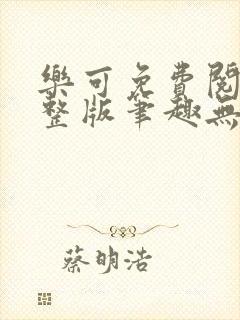 樂可免費閱
整版筆趣無
蔡明浩